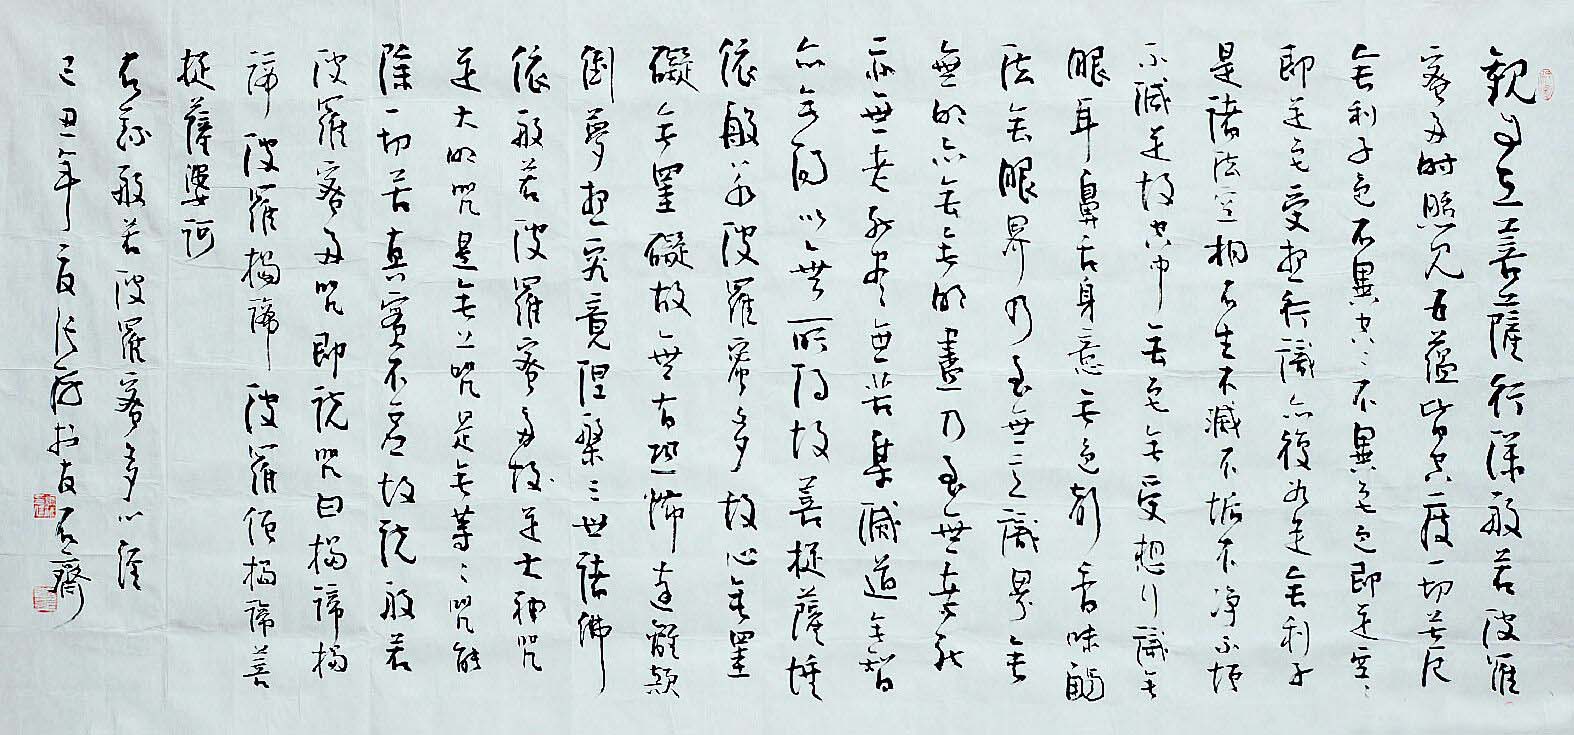 觀自在菩薩行深般若波羅
蜜多時照見五蘊皆空度一切苦厄
舍利子色不異空空不異色色即是空空
即是色受想行識亦復如是舍利子
是諸法空相不生不滅不垢不淨不增
不減是故空中無色無受想行識無
眼耳鼻舌身意無色聲香味觸
法無眼界乃至無意識界無
無明亦無無明盡乃至無老死
亦無老死盡無苦集滅道無智
亦無得以無所得故菩提薩埵
依般若波羅蜜多故心無罣
礙無罣礙故無有恐怖遠離顛
倒夢想究竟涅槃三世諸佛
依般若波羅蜜多故是大神咒
是大明咒是無上咒是無等等咒能
除一切苦真實不虛故說般若
波羅蜜多咒即說咒曰揭諦揭
諦波羅揭諦波羅僧揭諦菩
提薩婆訶
右錄般若波羅蜜多心經
己丑年夏於石齋